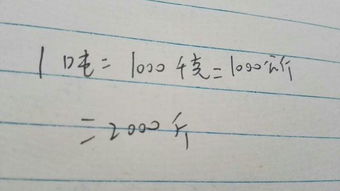 1吨=1000千克=1000公斤
=2000斤